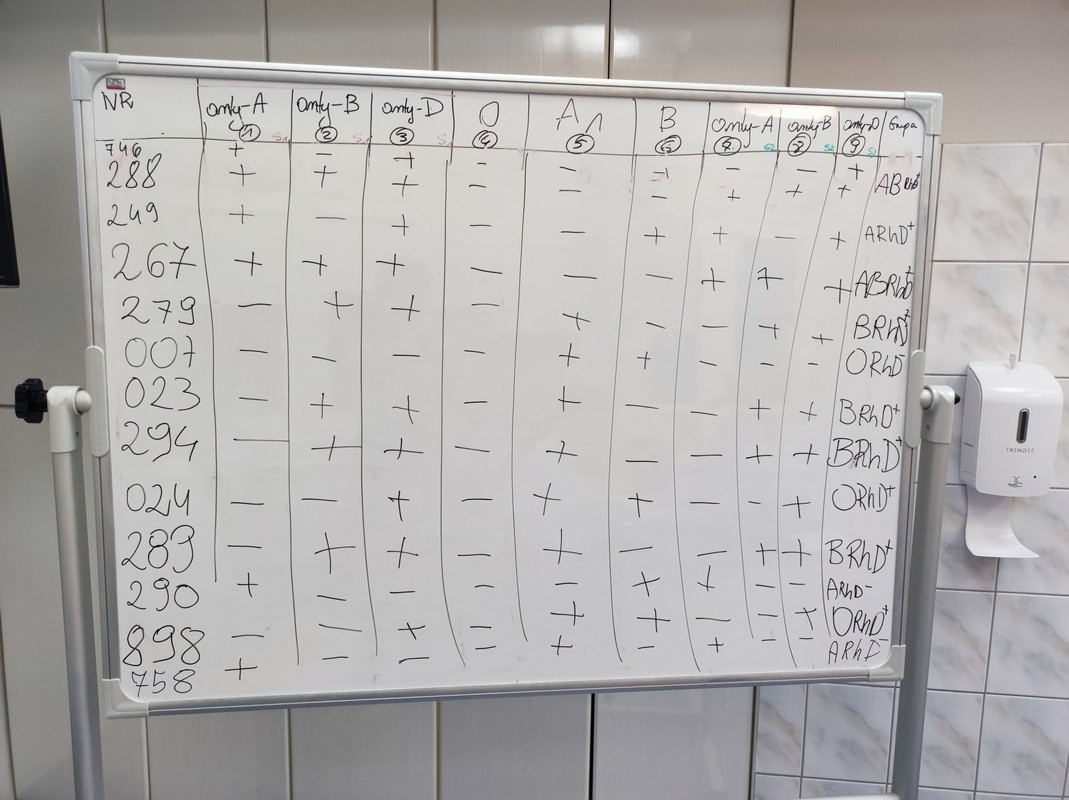 NR anty-A anty-B anty-D O A1 B anty-A anty-B anty-D Grupa
1 S1 2 S1 3 S1 4 5 6 7 S2 8 S2 9 S2
746 + - + - - - - - +
288 + + + - - - + + + ABRhD+
249 + - + - - + + - + ARhD+
267 + + + - - - + + + ABRhD+
279 - + + - + - - + + BRhD+
007 - - - - + + - - - ORhD-
023 - + + - + - - + + BRhD+
294 - + + - + - - + + BRhD+
024 - - + - + + - - + ORhD+
289 - + + - + - - + + BRhD+
290 + - - - - + + - - ARhD-
898 - - + - + + - - + ORhD+
758 + - - - + - + - - ARhD-
TRENDIS